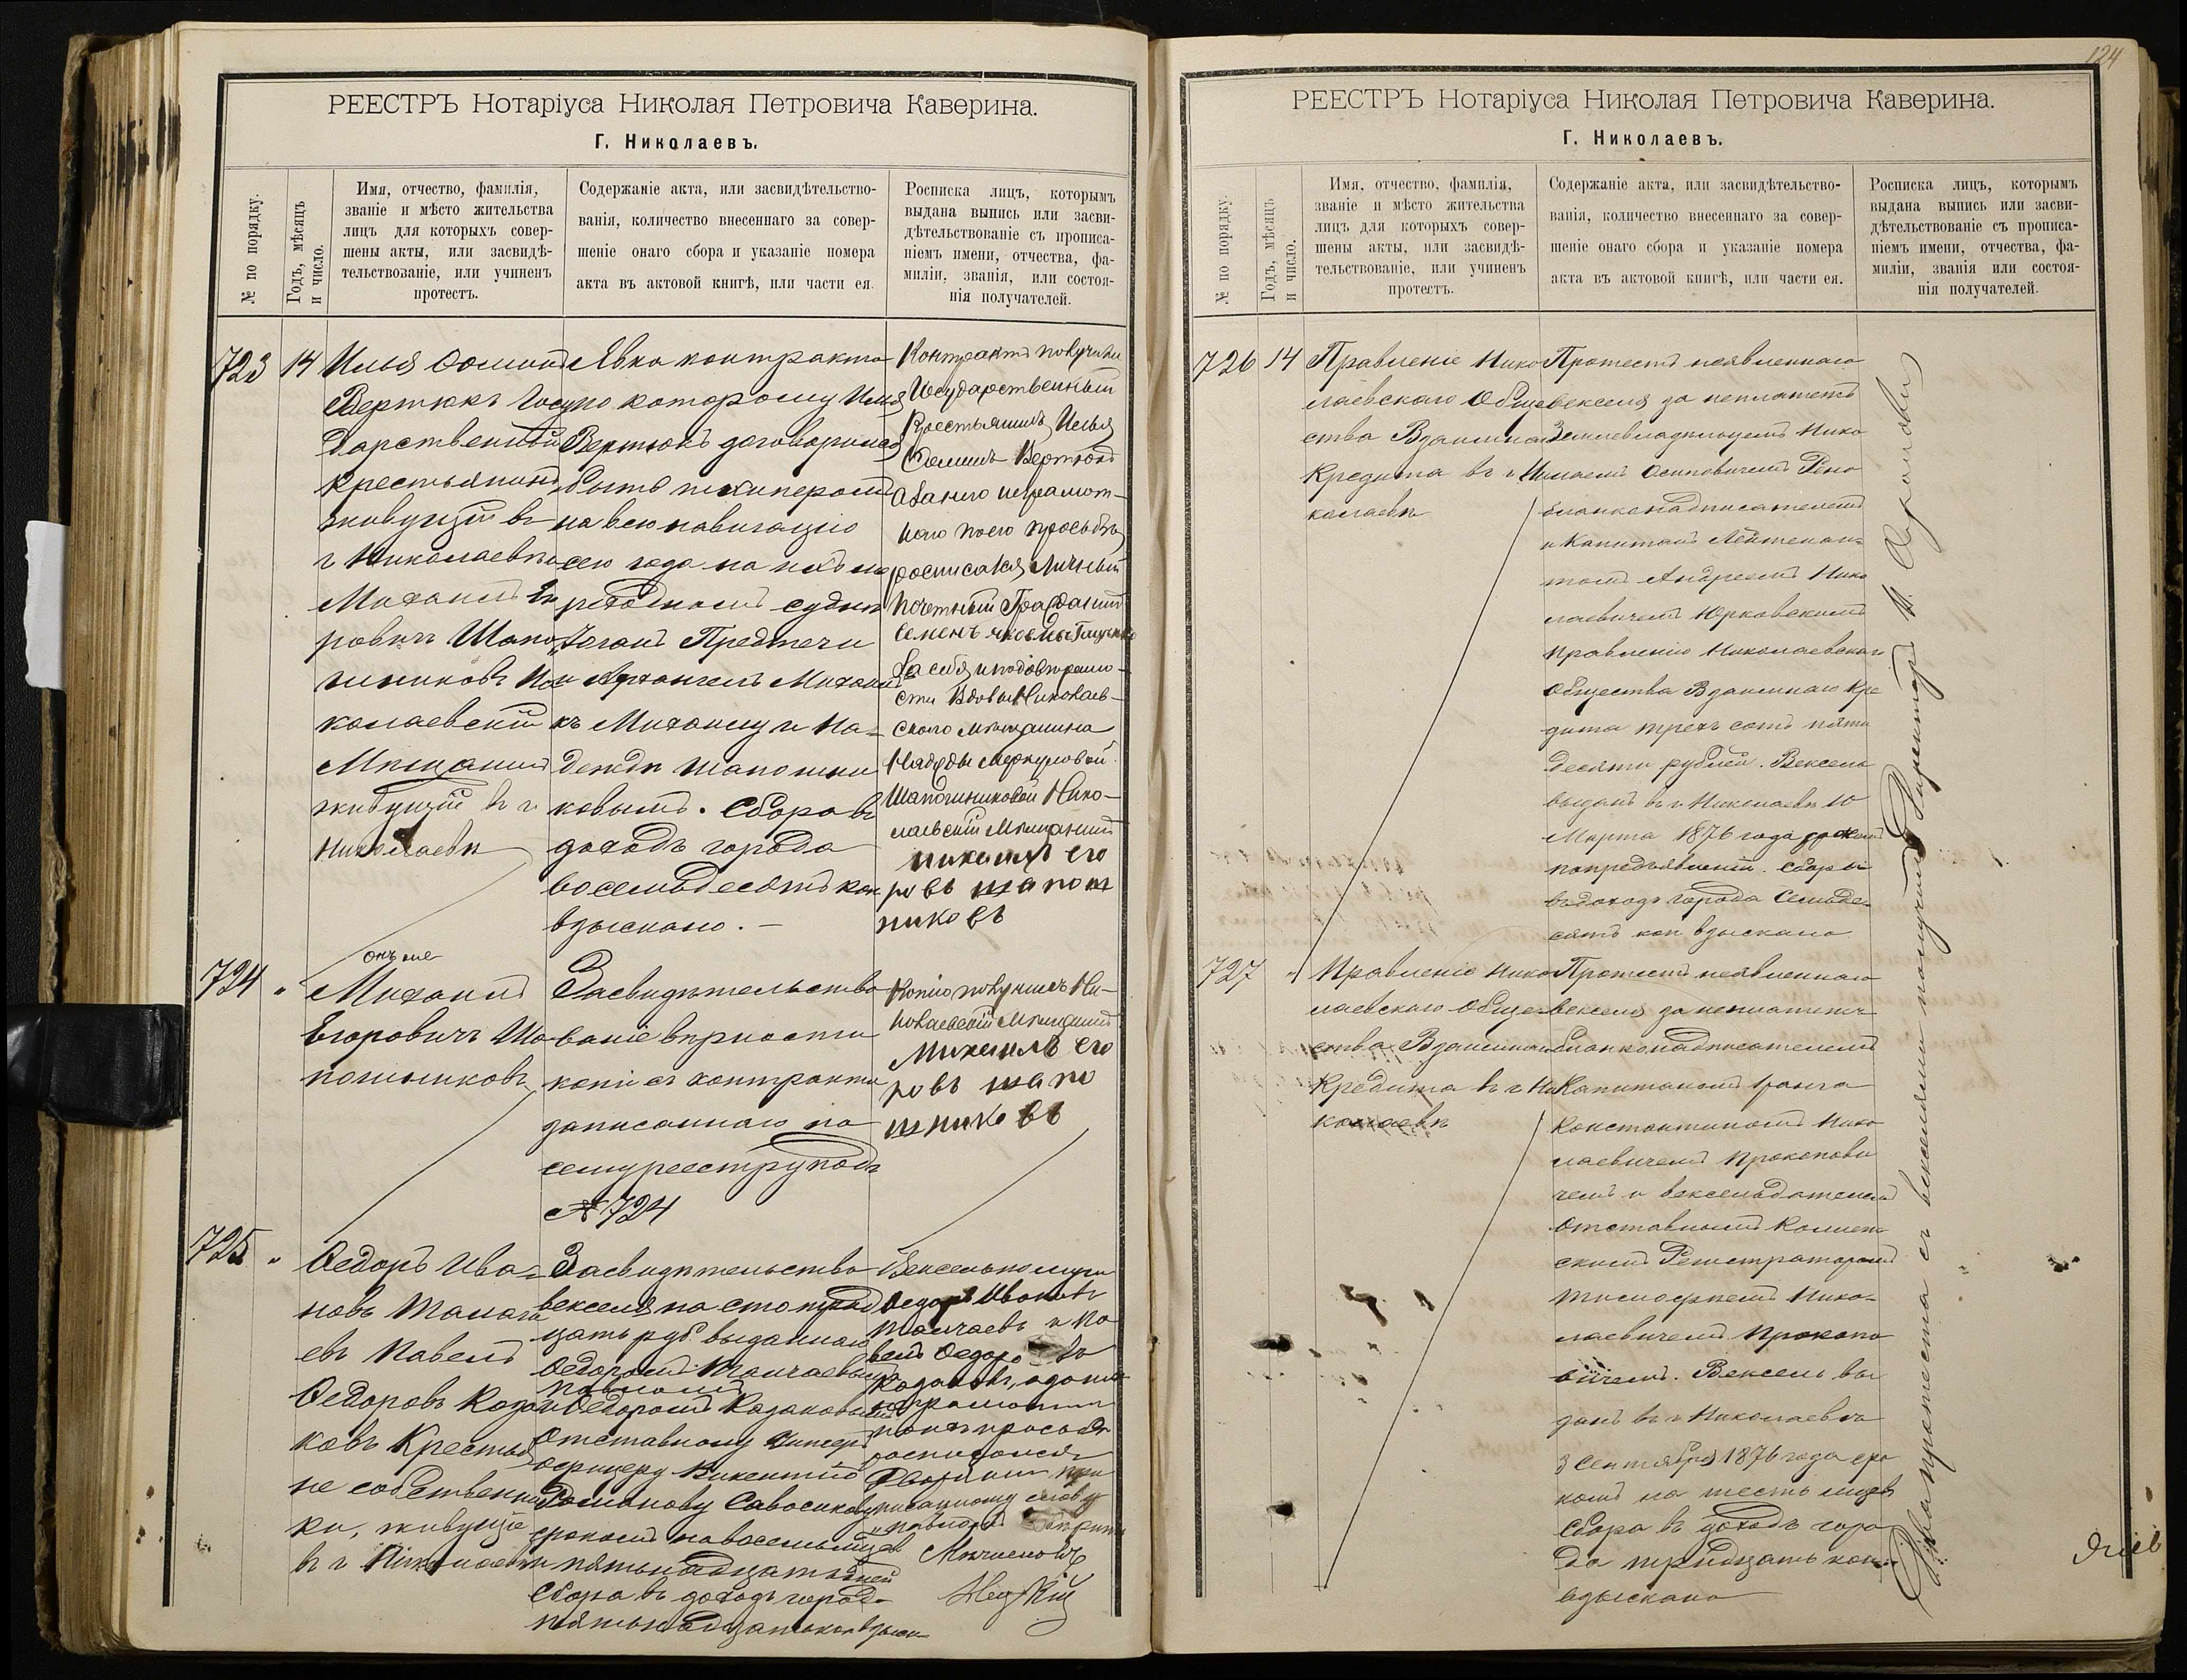 РЕЕСТРЪ Нотаріуса Николая Петровича Каверина.
Г. Николаевъ.
№ по порядку.
Годъ, мѣсяцъ
и число.
Имя, отчество, фамилія,
званіе и мѣсто жительства
лицъ для которыхъ совер-
шены акты, или засвидѣ-
тельствозаніе, или учиненъ
протестъ.
Содержаніе акта, или засвидѣтельство-
ванія, количество внесеннаго за совер-
шеніе онаго сбора и указаніе номера
акта въ актовой книгѣ, или части ея.
Росписка лицъ, которымъ
выдана выпись или засви-
дѣтельствованіе съ прописа-
ніемъ имени, отчества, фа-
миліи, званія, или состоя-
нія получателей.
723
14
Илья Ѳоминъ
Вертюкъ Госу
дарственный
крестьянинъ
живущій въ
г Николаевѣ и
Михаилъ Его
ровичъ Шапо
шниковъ Ни
колаевскій
Мѣщанинъ
живущій въ г
Николаевѣ
Явка контракта
по которому Илья
Вертюкъ договорился
быть шкиперомъ
на всю навигацію
сего года на
судне
Іоанъ Предтечи
и Архангелъ Михаилъ
къ Михаилу и На-
деждѣ Шапошни
ковымъ. Сбора въ
доходъ города
восемьдесятъ коп
взыскано. —
Контрактъ получили
Государственный
Крестьянинъ Илья
Ѳоминъ Вертюкъ
а за него неграмот-
наго по его просьбѣ
росписался Личный
Почетный Гражданинъ
Семенъ Яковлевъ
За себя и по довѣренно-
сти Вдовы Николаев-
скаго мѣщанина
Надежды Меркуловой
Шапошниковой Нико-
лаевскій Мѣщанинъ
михаилъ его
ровъ шапош
никовъ
724
"
онъ же
Михаилъ
Егоровичъ Ша
пошниковъ
Засвидѣтельство
ваніе вѣрности
копіи съ контракта
записаннаго по
сему реестру подъ
№ 724
Копію получилъ Ни-
колаевскій Мѣщанинъ
Михаилъ его
ровъ шапо
шниковъ
725
"
Ѳедоръ Ива-
новъ Малача
евъ Павелъ
Ѳедоровъ Каза
ковъ Крестья
не собственни
ки, живущіе
въ г Николаевѣ
Засвидѣтельство
векселя на сто трид
цать руб. выданнаго
Ѳедоромъ Малачаевымъ
Павломъ
и Ѳедоромъ Казаковымъ
Отставному Унтеръ
офицеру Викентію
Романову Савосикову
срокомъ на восемь мѣсяц
и пятьнадцать дней
Сбора въ доходъ город-
пятьнадцать коп взыск-
Вексель получи
Ѳедоръ Ивановъ
Малачаевъ и Па
велъ Ѳедоровъ
Казаковъ, а за нихъ
неграмотн
по ихъ просьбѣ
росписался
Дворянинъ при
писанному слову
"Павломъ"
РЕЕСТРЪ Нотаріуса Николая Петровича Каверина.
Г. Николаевъ.
124
№ по порядку.
Годъ, мѣсяцъ
и число.
Имя, отчество, фамилія,
званіе и мѣсто жительства
лицъ для которыхъ совер-
шены акты, или засвидѣ-
тельствованіе, или учиненъ
протестъ.
Содержаніе акта, или засвидѣтельство-
ванія, количество внесеннаго за совер-
шеніе онаго сбора и указаніе номера
акта въ актовой книгѣ, или части ея.
Росписка лицъ, которымъ
выдана выпись или засви-
дѣтельствованіе съ прописа-
ніемъ имени, отчества, фа-
миліи, званія или состоя-
нія получателей.
726
14
Правленіе Нико
лаевскаго Обще
ства Взаимнаго
Кредита въ г Ни
колаевѣ
Протестъ неявленнаго
векселя за неплатежъ
Землевладѣльцемъ Нико
лаемъ Осиповичемъ Рено
бланконадписателемъ
и Капитанъ Лейтенан-
томъ Андреемъ Нико
лаевичемъ Юрковскимъ
Правленію Николаевскаго
Общества Взаимнаго Кре
дита трехъ сотъ пяти
десяти рублей. Вексель
выданъ въ г Николаевѣ 10
Марта 1876 года срокомъ
по предъявленіи. Сбора
въ доходъ города Семьде-
сятъ коп взыскано
727
"
Правленіе Нико
лаевскаго Обще-
ства Взаимнаго
Кредита въ г Ни
колаевѣ
Протестъ неявленнаго
векселя за неплатежъ
бланконадписателемъ
Капитаномъ 1 ранга
Константиномъ Нико
лаевичемъ Прокопови
чемъ и векселедателемъ
Отставнымъ Коллеж
скимъ Регистраторомъ
Тимофеемъ Нико-
лаевичемъ Прокопо
вичемъ. Вексель вы
данъ въ г Николаевѣ
3 Сентября 1876 года сро
комъ на шесть мѣсяцев
Сбора въ доходъ горо
да тридцать коп.
взыскано
Два протеста съ векселями получилъ Директоръ